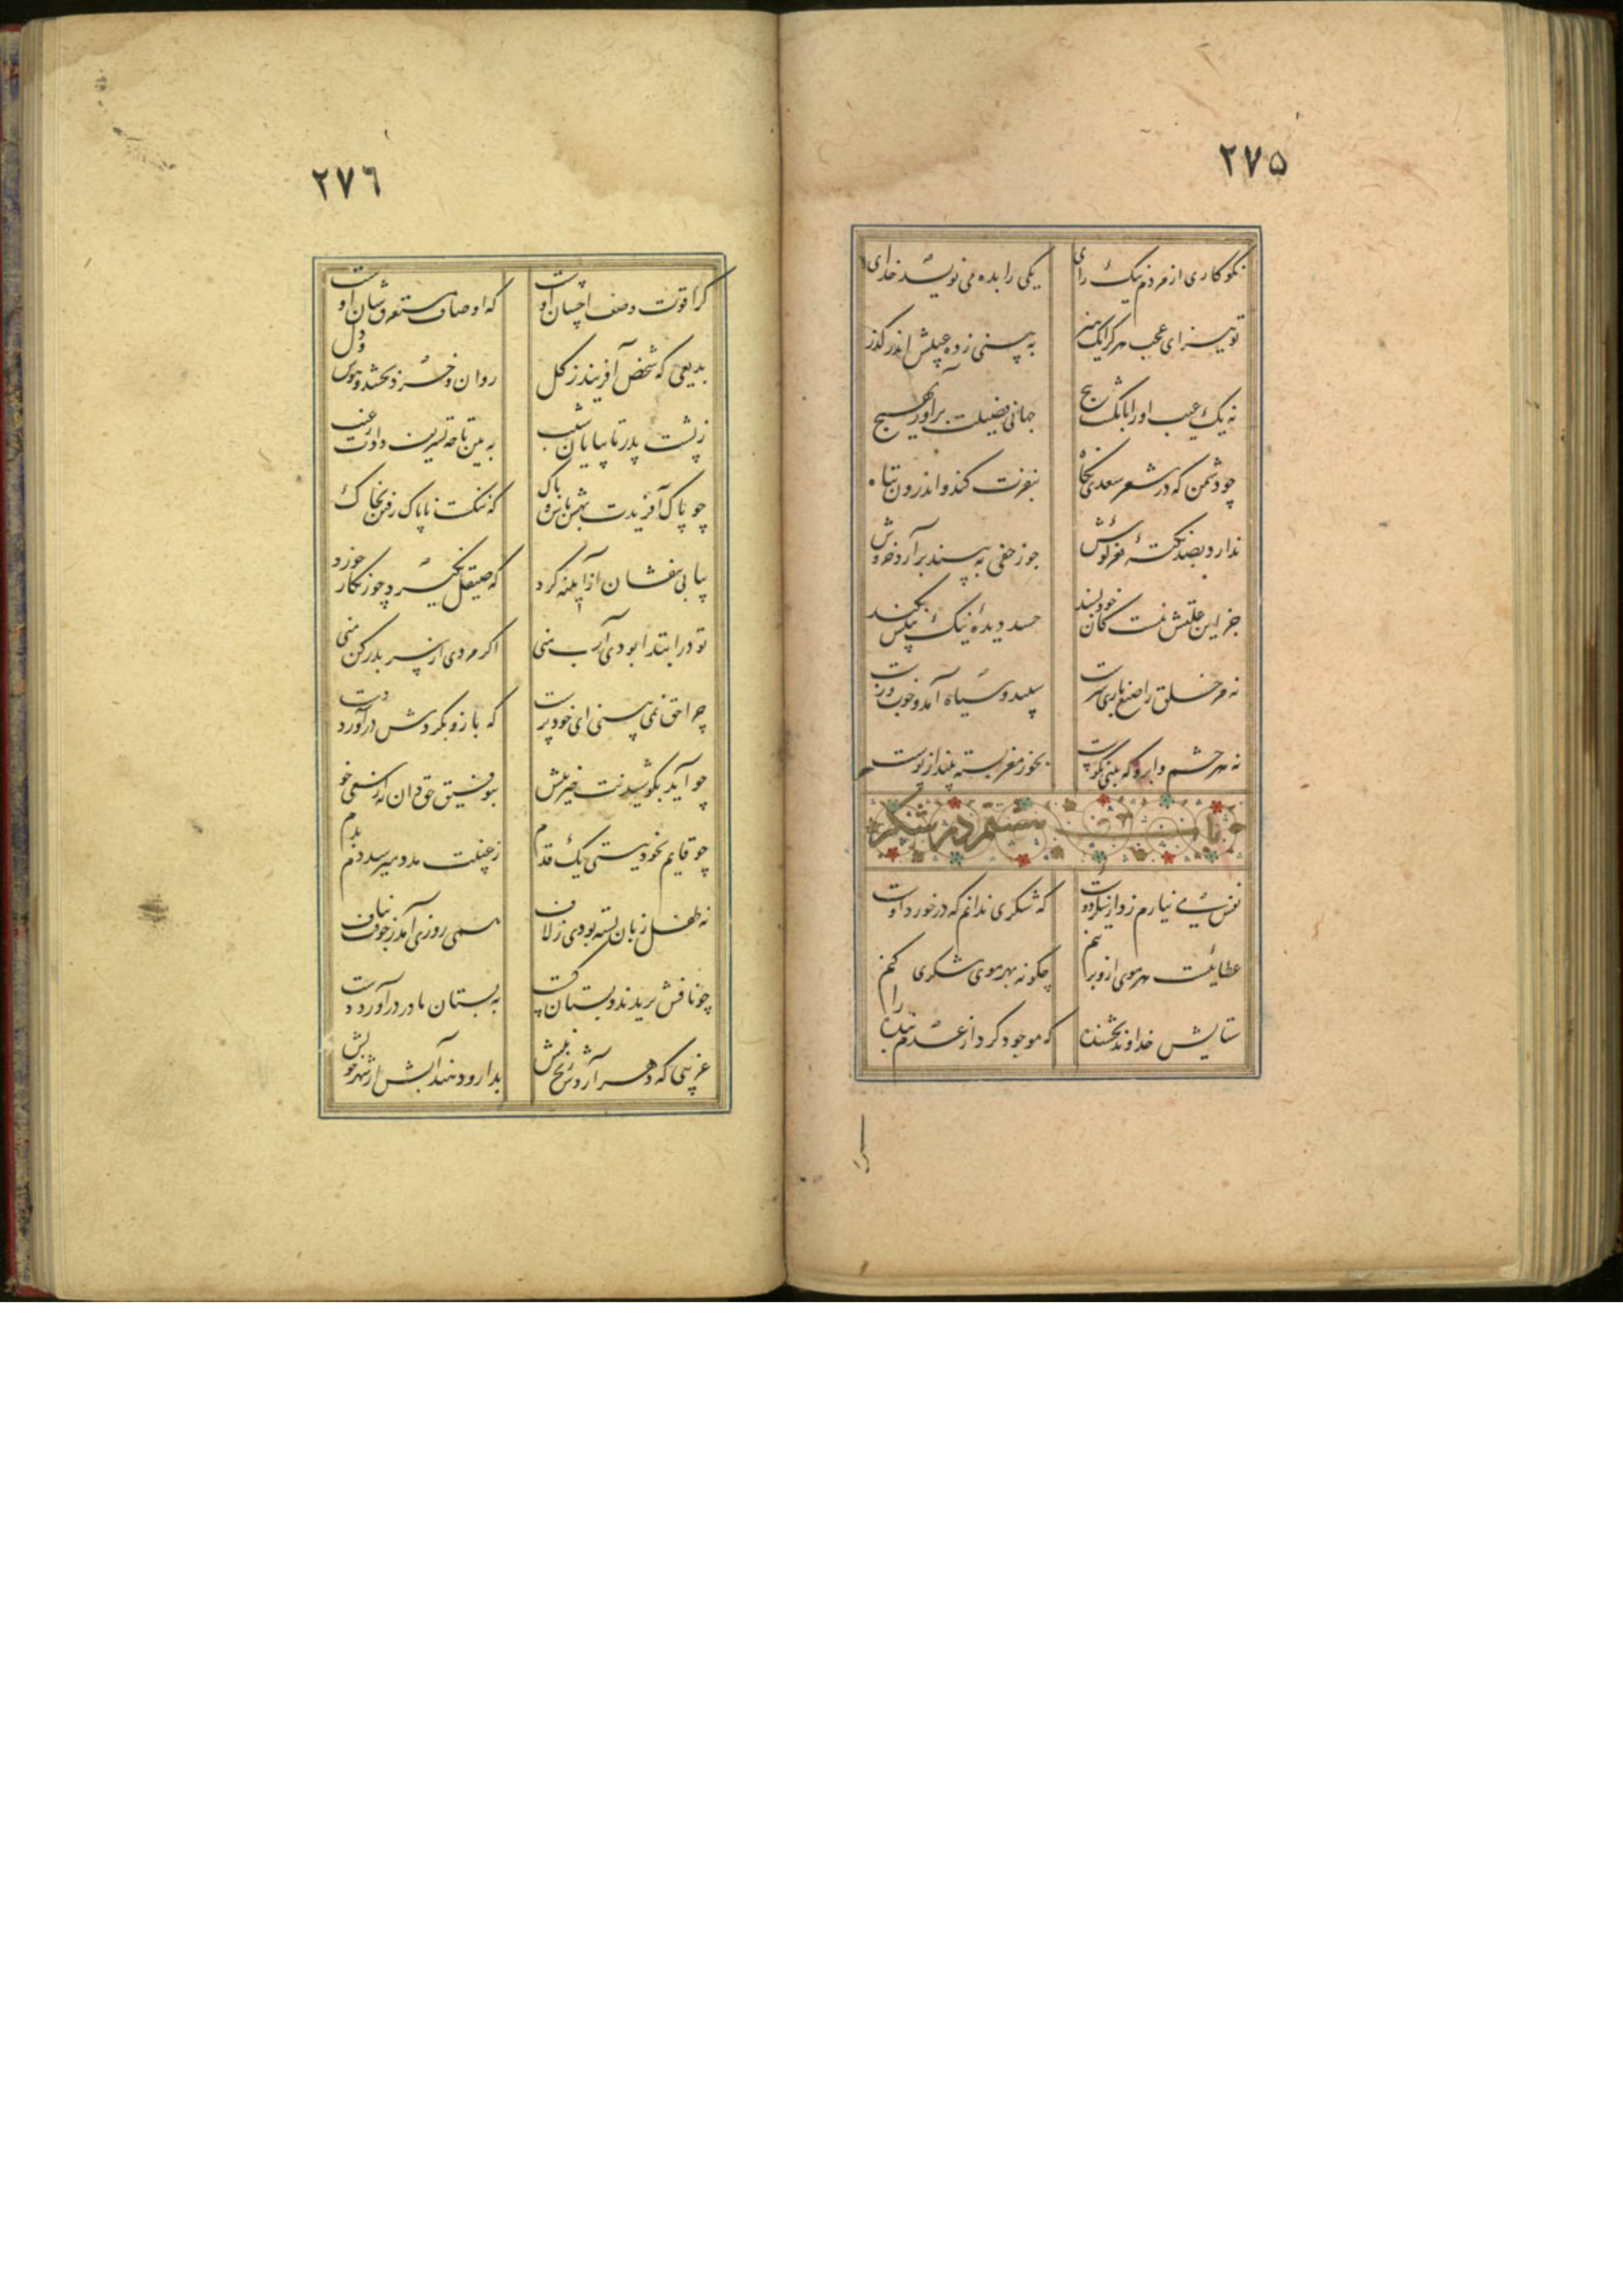 ۲۷۵
نکوکاری از مردم نیک رای یکی را بده می نویسد خدای
تو نیز ای عجب هر کرا یک هنر به بینی ز ده عیبش اندر گذر
نه یک عیب او را بانگشت پیچ جهانی فضیلت برآور بهیچ
چو دشمن که در شعر سعدی نگاه بنفرت کند و اندرون تباه
ندارد بصد نکتهٔ نغز گوش چو زحفی به بیند برآرد خروش
جز این علتش نیست کان خودپسند حسد دیدهٔ نیک بینش بکند
نه مر خلق را صنع باری سرشت سپید و سیاه آمد و خوب و زشت
نه هر چشم و ابرو که بینی نکوست بخور مغز پسته بینداز پوست
باب هشتم در شکر
نفس می نیارم زد از شکر دوست که شکری ندانم که در خورد اوست
عطائیست هر موی ازو بر تنم چگونه بهر موی شکری کنم
ستایش خداوند بخشنده را که موجود کرد از عدم بنده را
کرا
۲۷۶
کرا قوت وصف احسان اوست که اوصاف مستغرق شان اوست
بدیعی که شخص آفریند ز گل روان و خرد بخشد و هوش و دل
ز پشت پدر تا بپایان شیب ببین تا چه تشریف دادت ز غیب
چو پاک آفریدت بهش باش و پاک که ننگست ناپاک رفتن بخاک
پیاپی بیفشان از آیینه گرد که صیقل نگیرد چو زنگار خورد
تو در ابتدا بودی آب منی اگر مردی از سر بدر کن منی
چرا حق نمی بینی ای خودپرست که بازو بگردش درآورد دست
چو آید بکوشیدنت خیر پیش بتوفیق حق دان نه از سعی خویش
چو قایم بخود نیستی یک قدم ز غیبت مدد میرسد دم بدم
نه طفل زبان بسته بودی ز لاف همی روزی آمد بجوفت ز ناف
چو نافش بریدند و بستان گسست به بستان مادر درآورد دست
غریبی که دهر آردش رنج پیش بدارو دهند آبش از شهر خویش